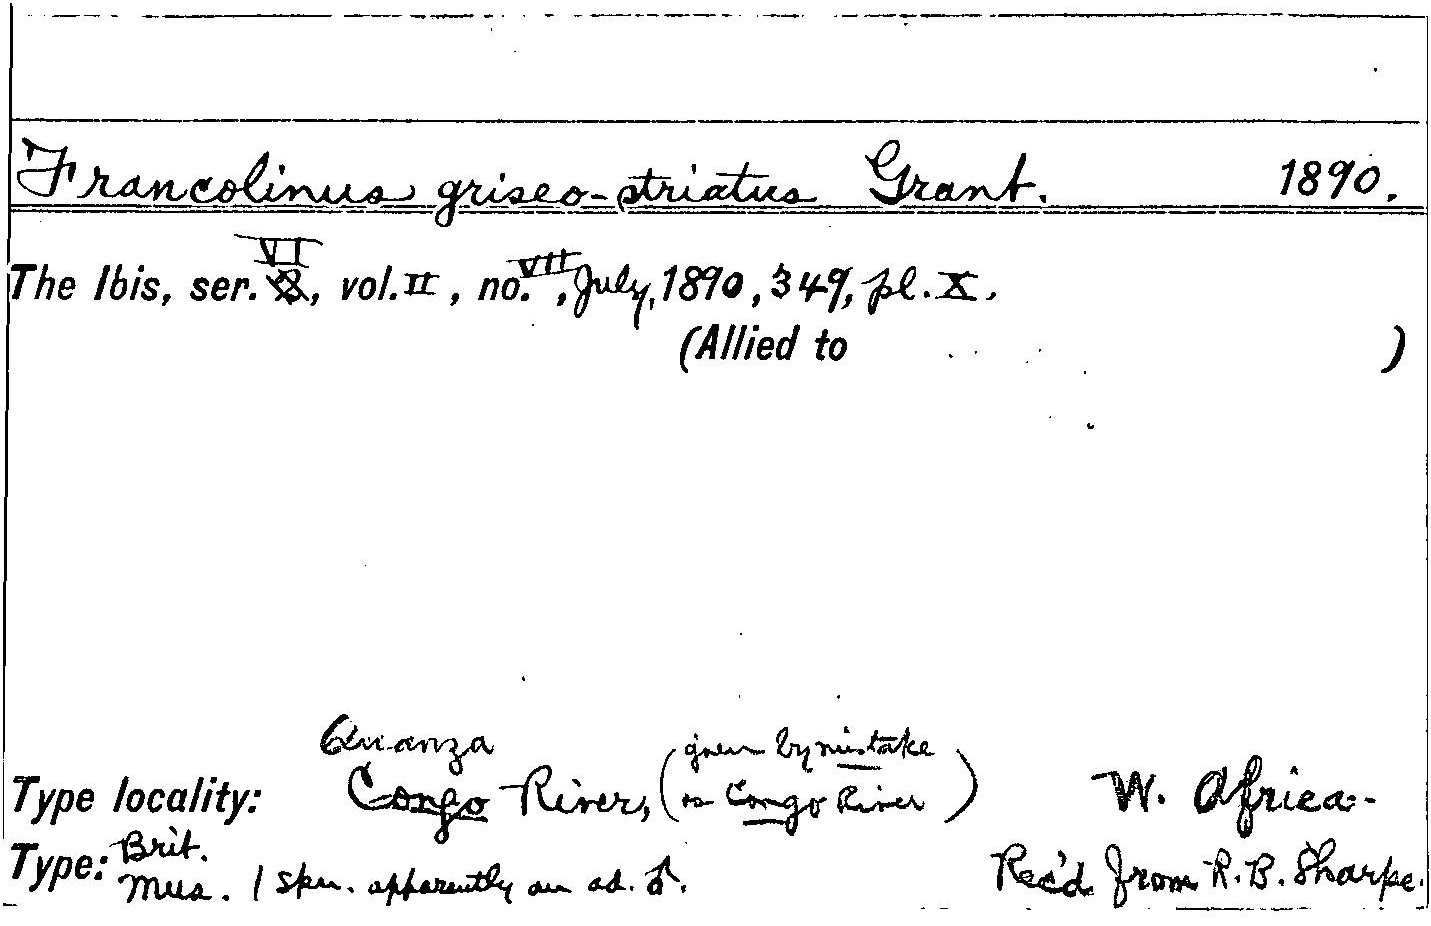 Francolinus griseo-striatus Grant. 1890.
The Ibis, ser. VI, vol. II, no. VII, July, 1890, 349, pl. X.
(Allied to )
Quanza
Type locality: Congo River, (given by mistake as Congo River) W. Africa.-
Type: Brit. Mus. 1 spm. apparently an ad. ♂. Rec'd from R. B. Sharpe.